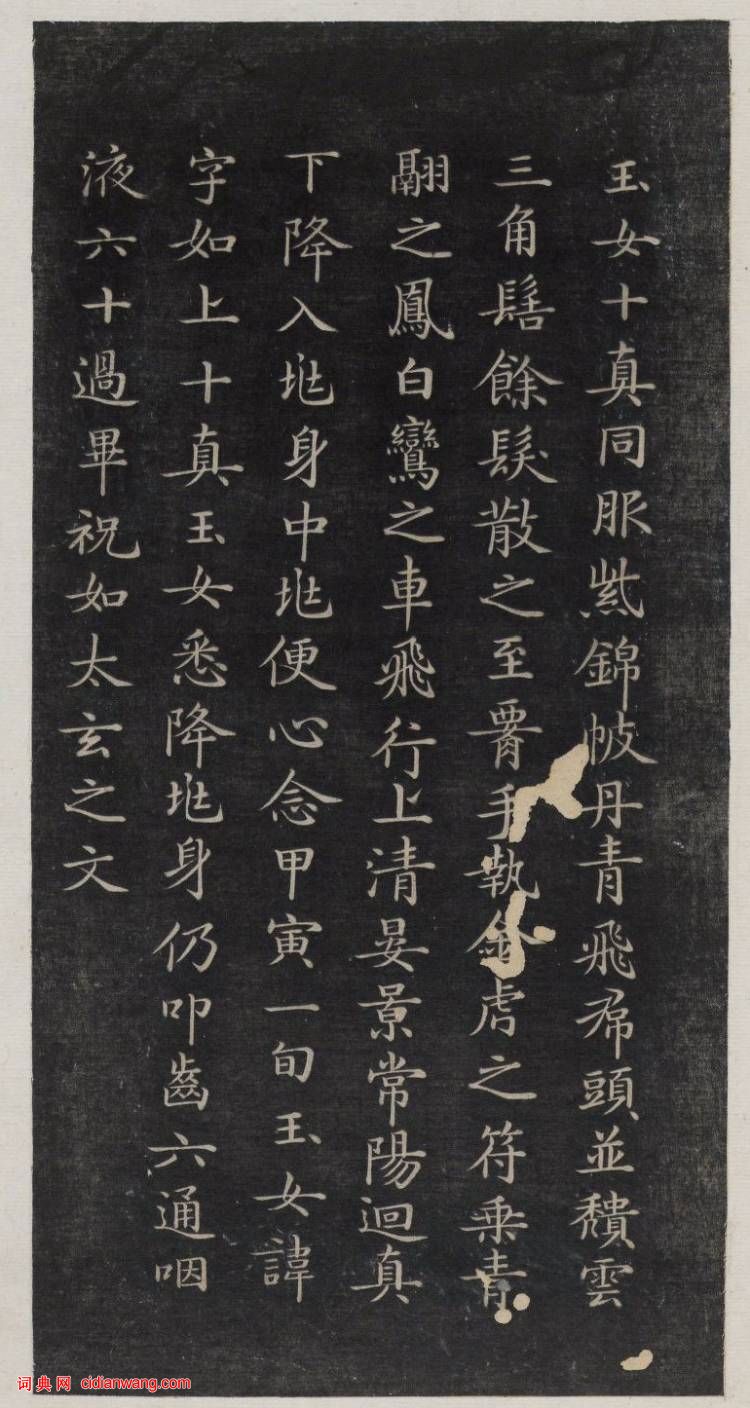 玉女十真同服紫錦帔丹青飛帬頭並頹雲
三角髻餘髮散之至腰手執金虎之符乗青
翮之鳳白鸞之車飛行上清晏景常陽迴真
下降入兆身中兆便心念甲寅一旬玉女諱
字如上十真玉女悉降兆身仍叩齒六通咽
液六十過畢祝如太玄之文
词典网 cidianwang.com